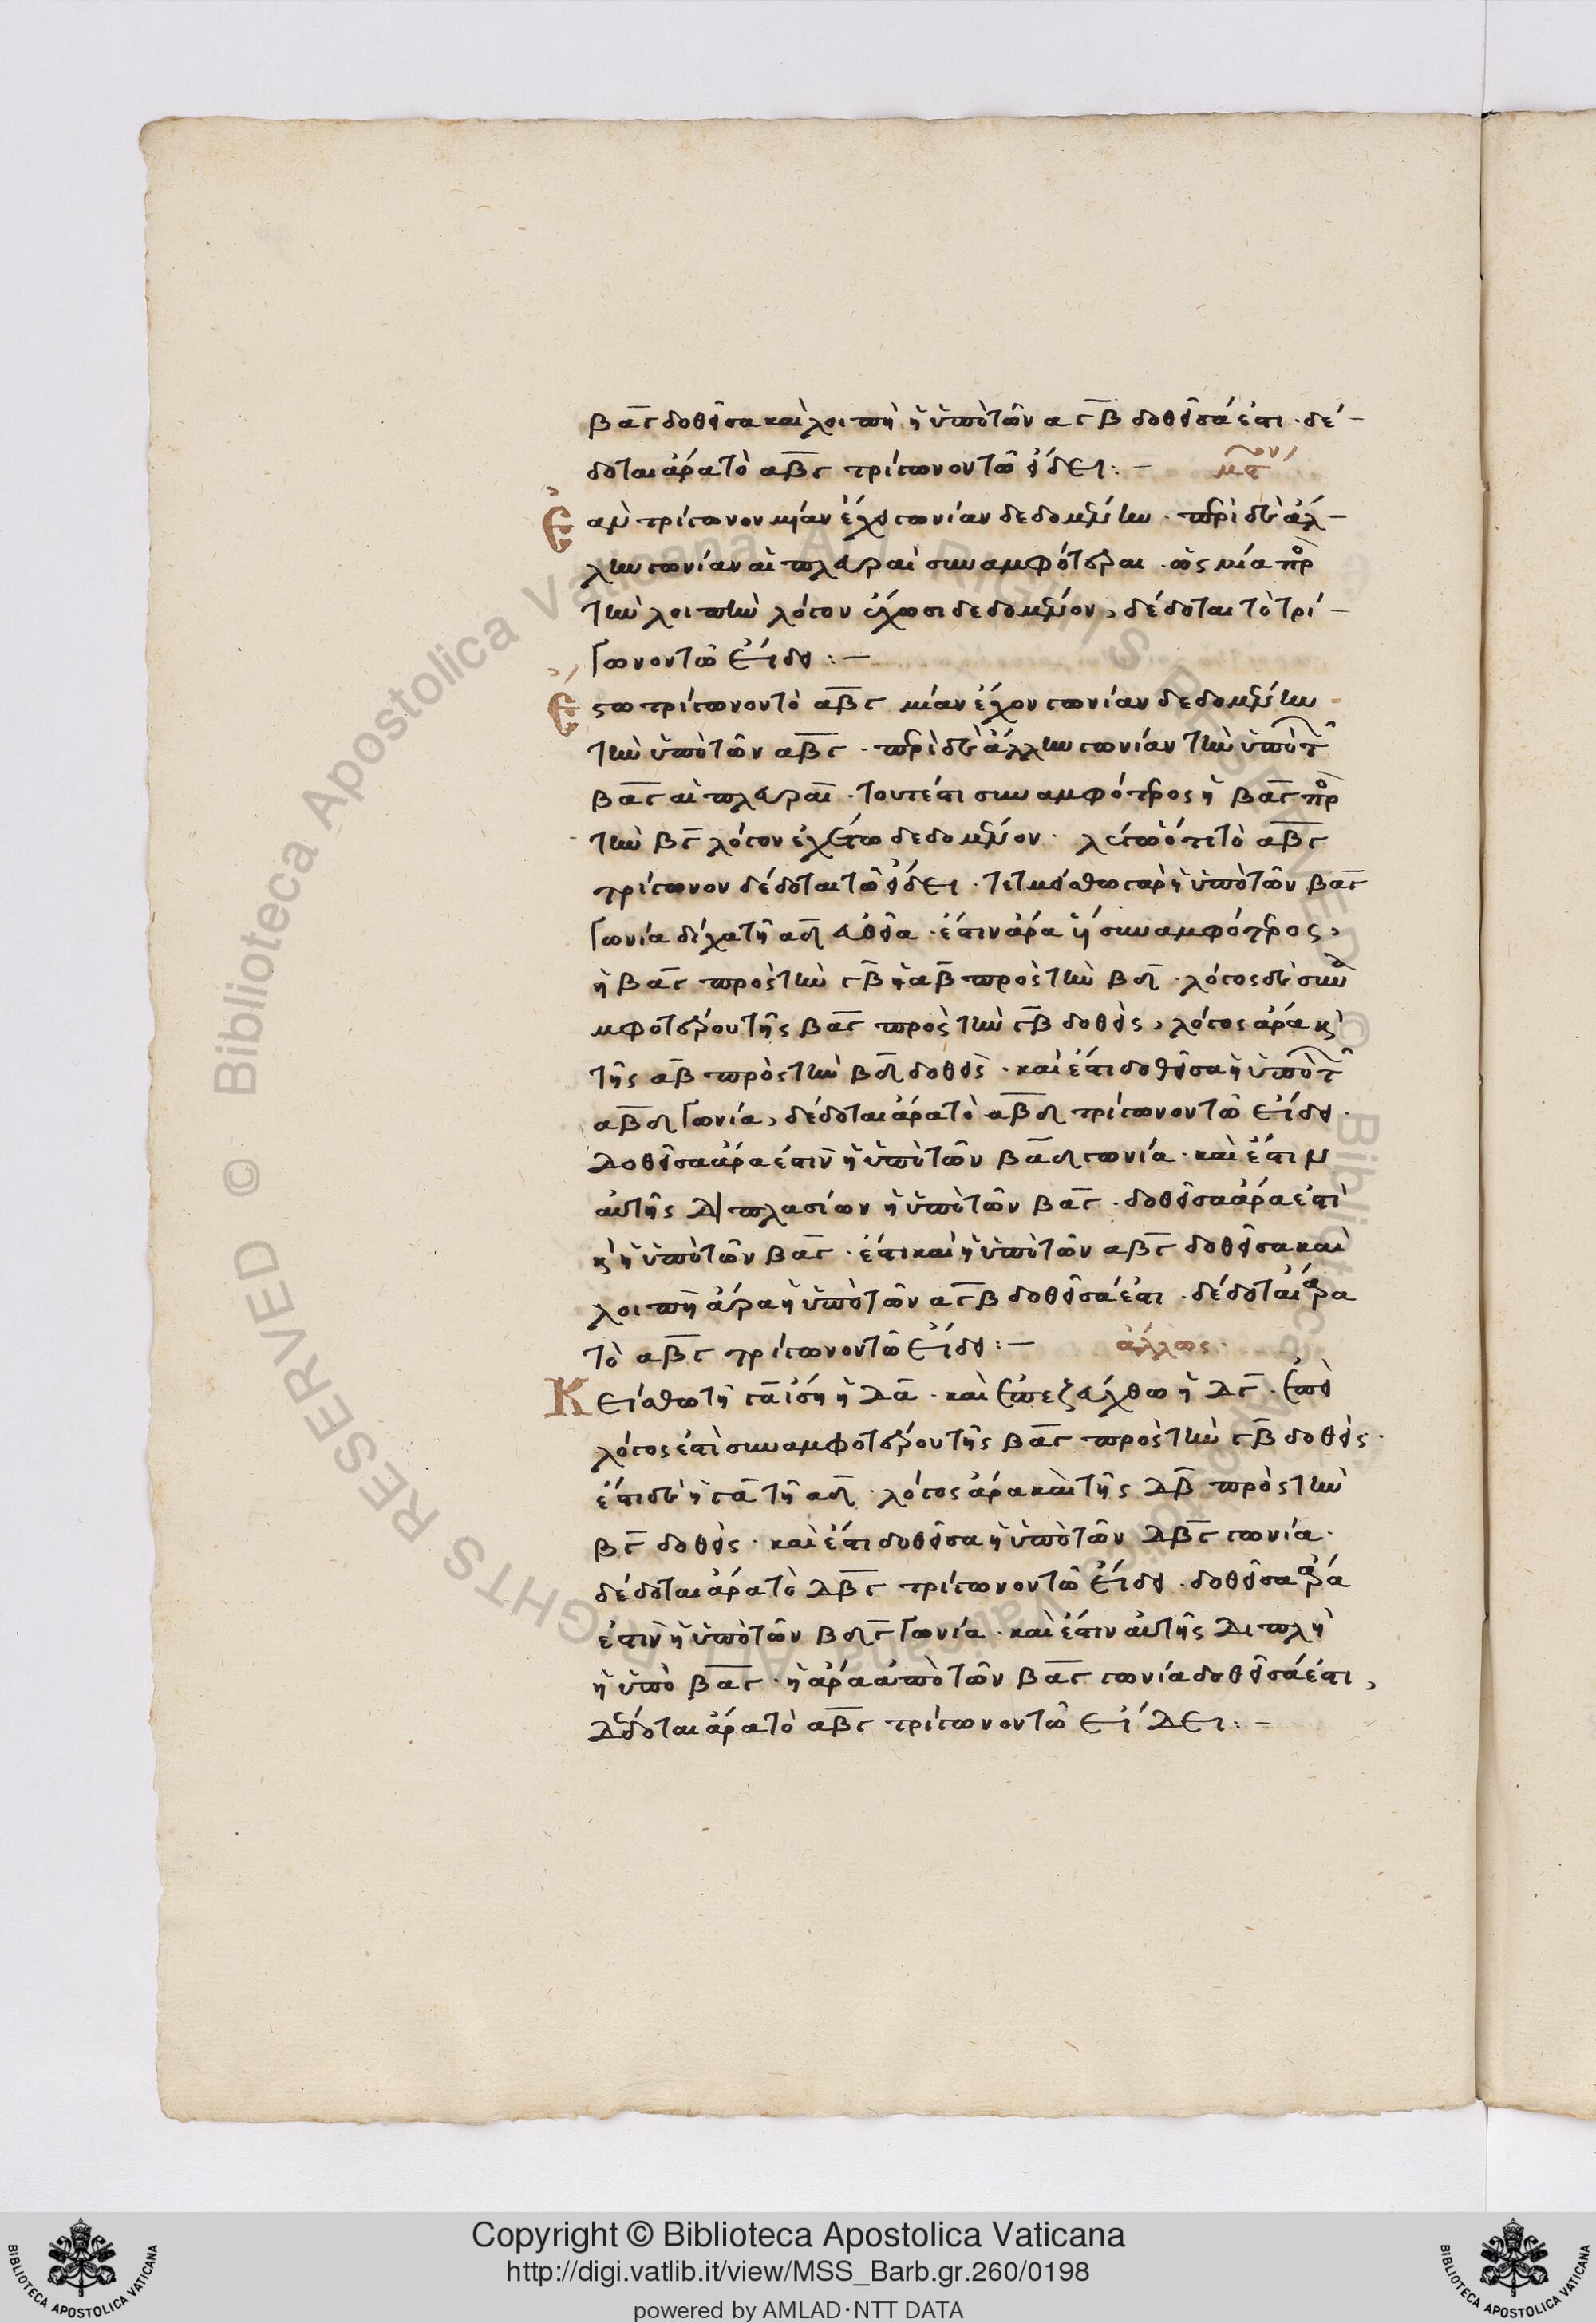 βαγ δοθεῖσα καὶ λοιπὴ ἡ ὑπὸ τῶν αγβ δοθεῖσά ἐστι · δέ-
δοται ἄρα τὸ αβγ τρίγωνον τῷ εἴδει :-
Ἐὰν τρίγωνον μίαν ἔχει γωνίαν δεδομένην · περὶ δὲ ἄλ-
λην γωνίαν αἱ πλευραὶ συναμφότεραι · ὡς μία πρὸ
τὴν λοιπὴν λόγον ἔχωσι δεδομένον, δέδοται τὸ τρί-
γωνον τῷ εἴδει :-
Ἔστω τρίγωνον τὸ αβγ μίαν ἔχον γωνίαν δεδομένην
τὴν ὑπὸ τῶν αβγ · περὶ δὲ ἄλλην γωνίαν τὴν ὑπὸ τ
βαγ αἱ πλευραὶ · τουτέστι συναμφότερος ἡ βαγ πρὸ
τὴν βγ λόγον ἐχέτω δεδομένον · λέγω ὅτι τὸ αβγ
τρίγωνον δέδοται τῷ εἴδει · τετμείσθω γὰρ ἡ ὑπὸ τῶν βαγ
γωνία δίχα τῇ αδ εὐθεία · ἔστιν ἄρα ἡ συναμφότερος,
ἡ βαγ πρὸς τὴν γβ ἡ αβ πρὸς τὴν βδ · λόγος δὲ συνα
μφοτέρου τῆς βαγ πρὸς τὴν γβ δοθεὶς, λόγος ἄρα κὶ
τῆς αβ πρὸς τὴν βδ δοθεὶς · καὶ ἔστι δοθεῖσα ἡ ὑπὸ τ
αβδ γωνία, δέδοται ἄρα τὸ αβδ τρίγωνον τῷ εἴδει ·
δοθεῖσα ἄρα ἐστὶν ἡ ὑπὸ τῶν βαδ γωνία · καὶ ἔστιν
αὐτῆς διπλασίων ἡ ὑπὸ τῶν βαγ · δοθεῖσα ἄρα ἐστὶ
κὶ ἡ ὑπὸ τῶν βαγ · ἔστι καὶ ἡ ὑπὸ τῶν αβγ δοθεῖσα καὶ
λοιπὴ ἄρα ἡ ὑπὸ τῶν αγβ δοθεῖσά ἐστι · δέδοται ἄρα
τὸ αβγ τρίγωνον τῷ εἴδει :- ἄλλως ·
Κείσθω τῇ γα ἴση ἡ δα · καὶ ἐπεζεύχθω ἡ δγ · ἐπεὶ
λόγος ἐστὶ συναμφοτέρου τῆς βαγ πρὸς τὴν γβ δοθεὶς ·
ἔστι δὲ ἡ γα τῇ αδ · λόγος ἄρα καὶ τῆς δβ πρὸς τὴν
βγ δοθεὶς · καὶ ἔστι δοθεῖσα ἡ ὑπὸ τῶν δβγ γωνία ·
δέδοται ἄρα τὸ δβγ τρίγωνον τῷ εἴδει · δοθεῖσα ἄρα
ἐστὶν ἡ ὑπὸ τῶν βδγ γωνία · καὶ ἔστιν αὐτῆς διπλὴ
ἡ ὑπὸ βαγ · ἡ ἄρα ἀπὸ τῶν βαγ γωνία δοθεῖσά ἐστι,
δέδοται ἄρα τὸ αβγ τρίγωνον τῷ εἴδει :-
© Biblioteca Apostolica Vaticana ALL RIGHTS RESERVED
Copyright © Biblioteca Apostolica Vaticana
http://digi.vatlib.it/view/MSS_Barb.gr.260/0198
powered by AMLAD·NTT DATA
BIBLIOTECA APOSTOLICA VATICANA
BIBLIOTECA APOSTOLICA VATICANA